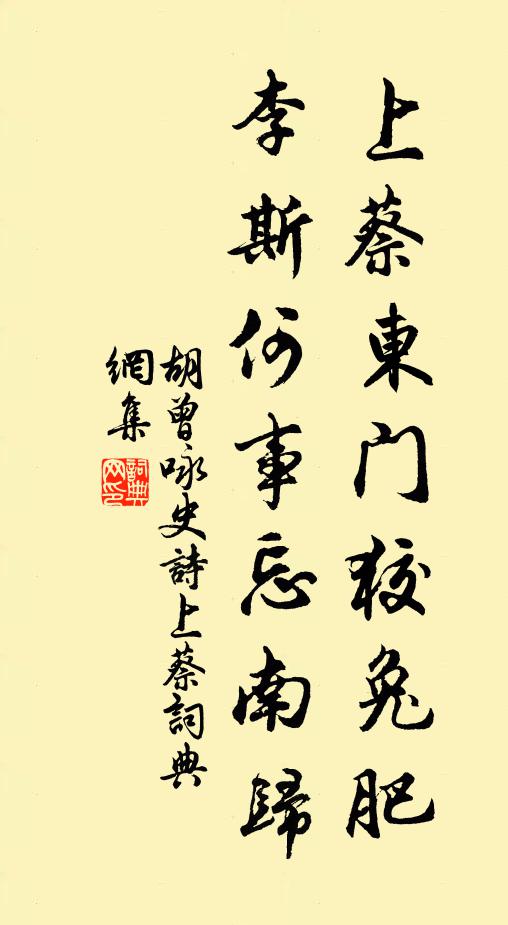 上蔡東門狡兔肥
李斯何事忘南歸
胡曾咏史詩上蔡詞典
網集
詞典
网印